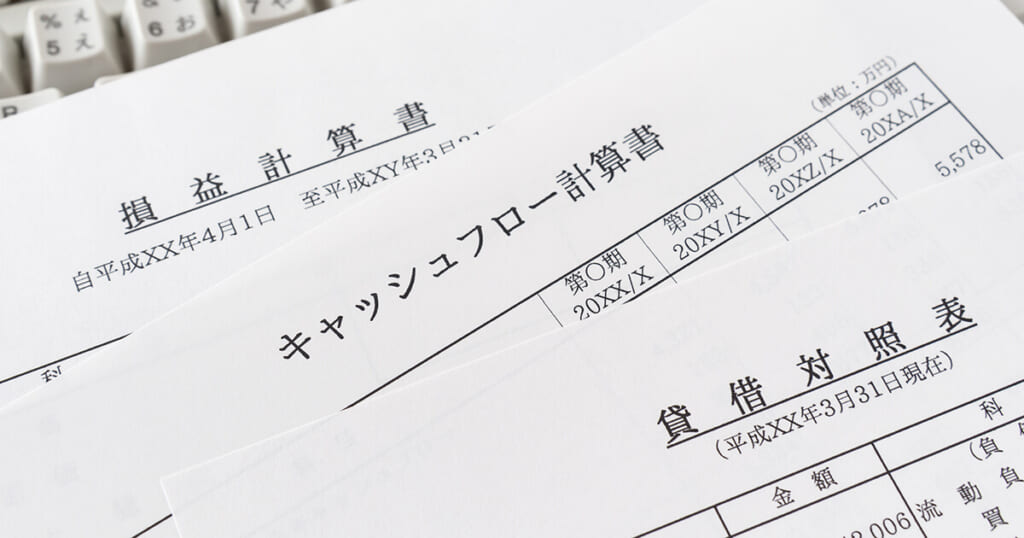 % え
5 え
&
6 お
7 や
損益計算書
自平成XX年4月1日 至平成XY年3月31
キャッシュフロー計算書
(単位;万円)
第〇期
20XX/X
第〇期
20XY/X
第〇期
20XZ/X
第〇期
20XA/X
5,578
貸借対照表
(平成XX年3月31日現在)
金額
科
(負
流動負
買